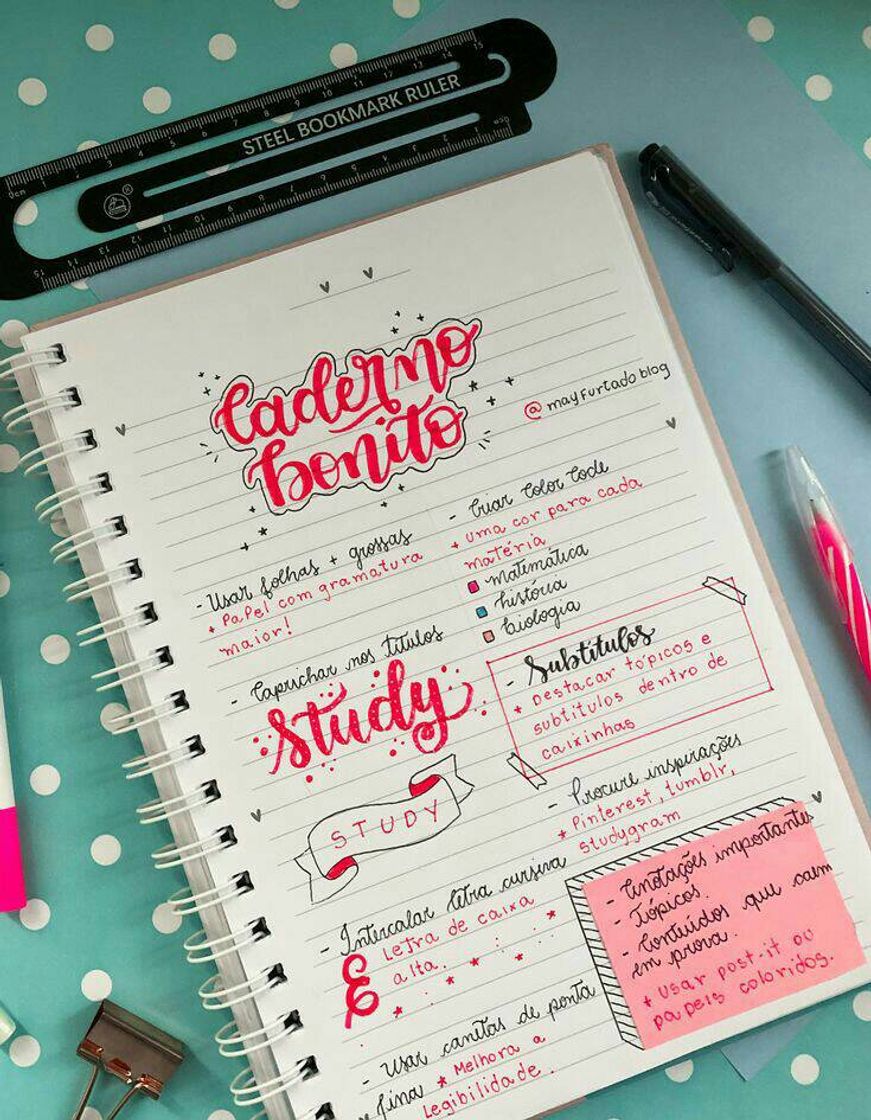 STEEL BOOKMARK RULER
caderno
bonito
@mayfurtado blog
- Usar folhas + grossas
+ Papel com gramatura
maior!
- Criar Color Code
+ uma cor para cada
matéria
matemática
história
biologia
- Caprichar nos títulos
Study
STUDY
- Subtítulos
+ Destacar tópicos e
subtítulos dentro de
caixinhas
- Procure inspirações
* Pinterest, tumblr,
studygram
- Intercalar letra cursiva
E Letra de caixa
alta.
- Anotações importantes
- Tópicos.
- Conteúdos que caem
em prova.
+ Usar post-it ou
papeis coloridos.
- Usar canitas de ponta
fina * Melhora a
Legibilidade.